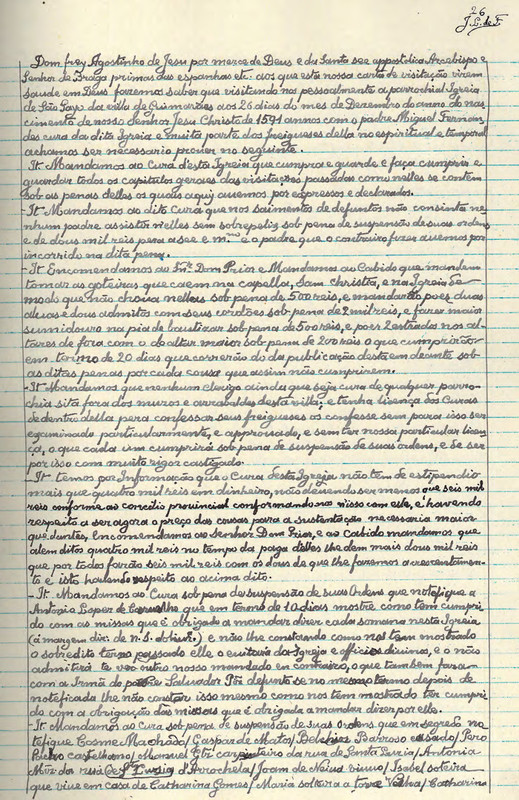 26
J. G. de F.
Dom frey Agostinho de Jesu por merce de Deus e da Santa see appostolica Arcebispo e
Senhor de Braga primas das espanhas etc. aos que esta nossa carta de visitação virem
saude em Deus fazemos saber que visitando nos pessoalmente a parrochial Igreia
de São Payo da villa de Guimarães aos 26 dias do mes de Dezembro do anno do nas
cimento de nosso Senhor Jesu Christo de 1591 annos com o padre Miguel Fernan
des cura da dita Igreia e muita parte dos freigueses della no espiritual e temporal
achamos ser necessario prover no seguinte.
It. Mandamos ao Cura d'esta Igreia que cumpra e guarde e faça cumprir e
guardar todos os capitulos geraes das visitações passadas como nelles se contem
sob as penas delles os quais aqui avemos por expressos e declarados.
- It. Mandamos ao dito Cura que nos saimentos de defuntos não consinta ne
nhum padre assistir nelles sem sobrepeliz sob pena de suspensão de suas ordens
e de dous mil reis pera a see e m.^ro e o padre que o contrairo fizer avemos por
incorrido na dita pena.
- It. Encomendamos ao Dom Prior e Mandamos ao Cabido que mandem
tomar as goteiras que caem na capella, Sam christia, e na Igreia de
modo que não chova nellas sob pena de 500 reis, e mandarão poes duas
alvas e dous admitos com seus cordões sob pena de 2 mil reis, e fazer maior
sumidouro na pia de bautizar sob pena de 500 reis, e poes 2 estrados nos al
tares de fora com o do altar maior sob pena de 200 reis o que cumprirão
em termo de 20 dias que correrão do da publicação desta em deante sob
as ditas penas por cada cousa que assim não cumprirem.
- It. Mandamos que nenhum clerigo ainda que seja cura de qualquer parro
chia sita fora dos muros e arrabaldes desta villa, e tenha licença dos Curas
de dentro della pera confessar seus freigueses os confesse sem para isso ser
examinado particularmente, e approvado, e sem ter nossa particular licen
ça, o que cada um cumprirá sob pena de suspensão de suas ordens, e de ser
por isso com muito rigor castigado.
- It. temos por Informação que o Cura desta Igreja não tem de estipendio
mais que quatro mil reis em dinheiro, não devendo ser menos que seis mil
reis conforme ao concilio provincial conformando nos nisso com elle, e havendo
respeito a ser agora o preço das cousas para a sustentação necessaria maior
que dantes, Encomendamos ao Senhor Dom Prior, e ao cabido mandamos que
alem ditos quatro mil reis no tempo da paga delles lhe dem mais dous mil reis
que por todos farão seis mil reis com os dous de que lhe fazemos acrecentamen-
to e isto havendo respeito ao acima dito.
- It. Mandamos ao Cura sob pena de suspensão de suas Ordens que notefique a
Antonio Lopez de Carvalho que em termo de 10 dias mostre como tem cumpri
do com as missas que é obrigado a mandar dizer cada somana nesta Igreia
(á margem diz: de n. S. do ) e não lhe constando como nos tem mostrado
o sobredito termo passado elle o evitará da Igreja e officios divinos, e o não
admitirá te ver outro nosso mandado em contrairo, o que tambem fará
com a Irmã do padre Salvador Piz defunto se no mesmo termo depois de
noteficada lhe não constar isso mesmo como nos tem mostrado ter cumpri
do com a obrigação das missas que é obrigada a mandar dizer por elle.
- It. Mandamos ao Cura sob pena de suspensão de suas Ordens que em segredo no
tefique Cosme Machado / Gaspar de Matos / Belchior Barroso casado / Pero
castelhano / Manuel Glz carpinteiro da rua de Santa Luzia / Antonia
Miz da rua de S.ta Luzia d'Arrochela / Joam de Neiva viuvo / Isabel solteira
que vive em casa de Catharina Gomes / Maria solteira a Torre Velha / Catharina